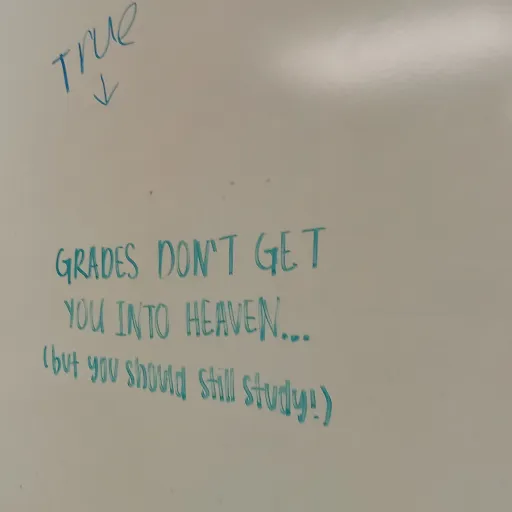 True
GRADES DON'T GET
YOU INTO HEAVEN...
(but you should still study!)